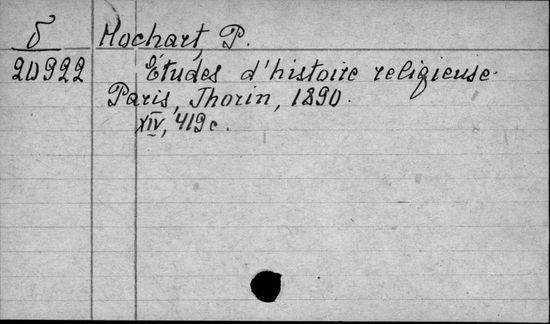 δ Hochart, P.
20922 Études d'histoire religieuse.
Paris, Thorin, 1890.
XIV, 419 c.